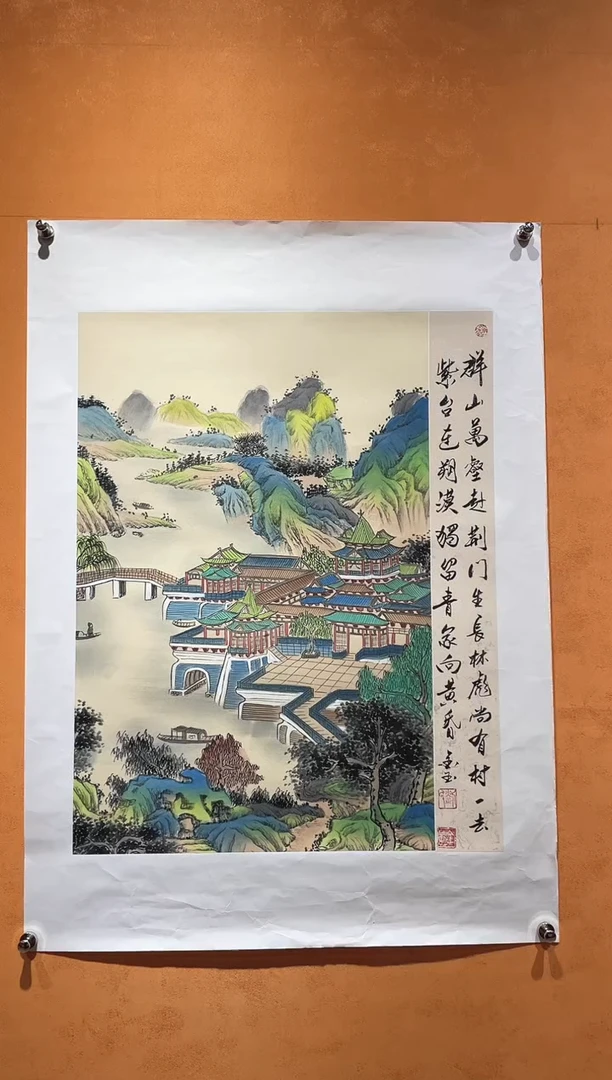 群山萬壑赴荆门生長林彪尚有村一去
紫台连朔漠獨留青冢向黄昏